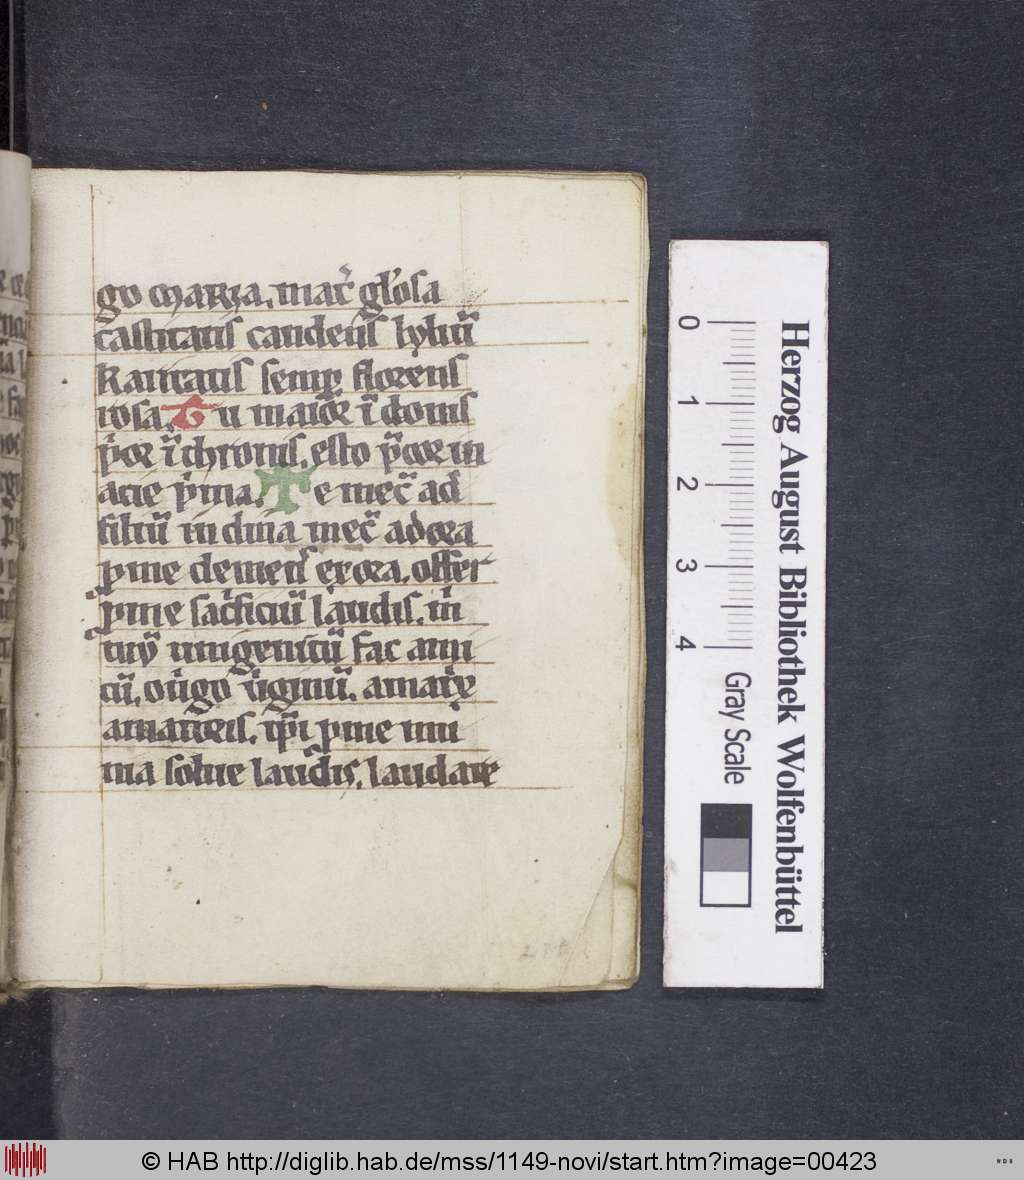 go maria, mat̾ gl̾osa
castitatis candens lyliū
karitatis semp̲ florens
rosa. Tu maior ī donis
p̾or ī thronis, esto p̾cor in
acie p̾ma. Te mec̄ ad
filiū in clina mec̄ adora
p̲ me clemen̾ exora, offer
p̲ me sac̾ficiū laudis, in̾
tuū unigenitū fac ami
cū, o v̾go v̾ginū, amat̾x
amatoris, ip̄i p̲ me mi
ma solue laudis, laudare
0
1
2
3
4
Gray Scale
Herzog August Bibliothek Wolfenbüttel
© HAB http://diglib.hab.de/mss/1149-novi/start.htm?image=00423